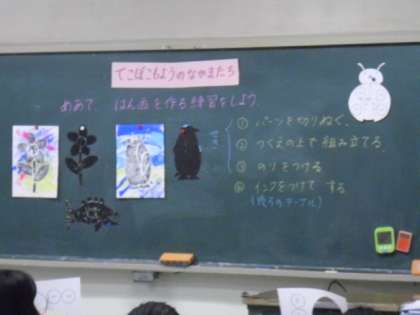 でこぼこもようのなかまたち
めあて はん画を作る練習をしよう
① パーツを切りぬく。
② つくえの上で組み立てる。
③ のりをつける
④ インクをつけて する。
(後ろのテーブル)